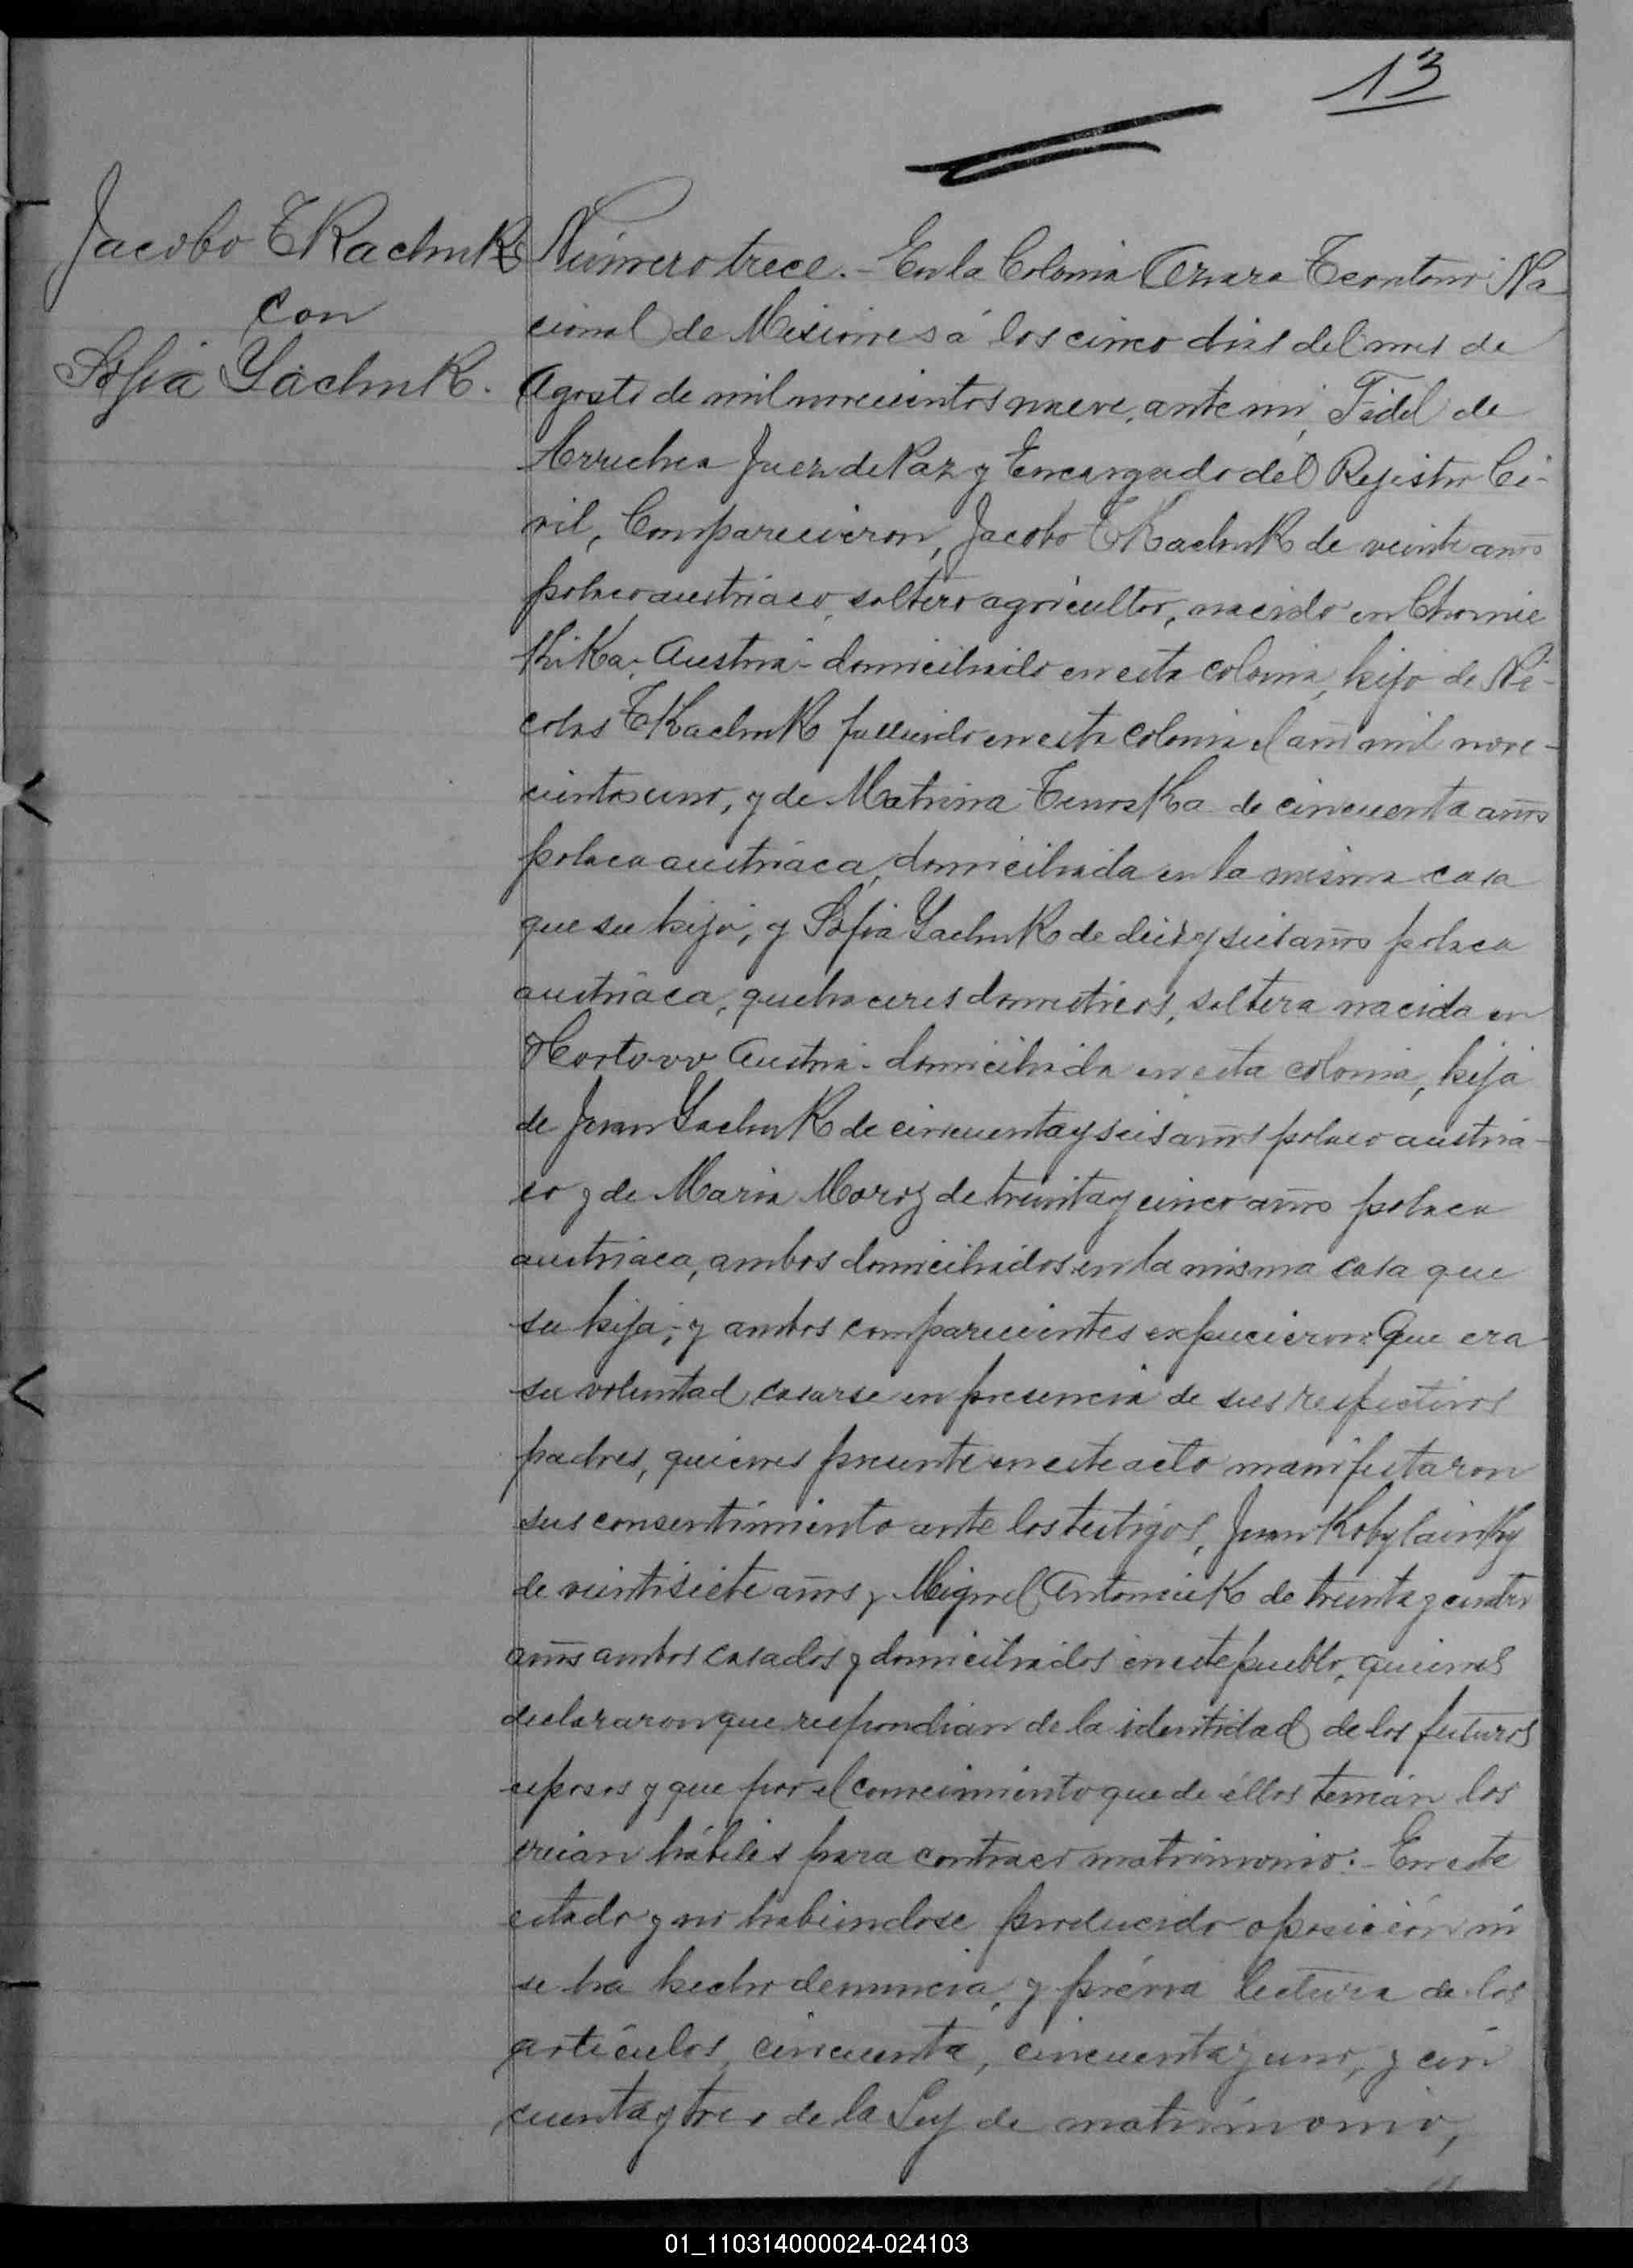 13
Jacobo TKachuk
con
Sofia Yachuk.
Número trece.- En la Colonia Azara Territorio Na-
cional de Misiones á los cinco dias del mes de
Agosto de mil novecientos nueve, ante mi, Fidel de
Arrechea Juez de Paz y Encargado del Rejistro Ci-
vil, Comparecieron, Jacobo TKachuk de veinte años
polaco austriaco, soltero agricultor, nacido en
Austria- domiciliado en esta colonia, hijo de Ni-
colas TKachuk fallecido en esta colonia el año mil nove-
cientos uno, y de Matrina de cincuenta años
polaca austriaca, domiciliada en la misma casa
que su hijo, y Sofia Yachuk de diez y seis años polaca
austriaca, quehaceres domesticos, soltera nacida en
Austria- domiciliada en esta colonia, hija
de Juan Yachuk de cincuenta y seis años polaco austria-
co y de Maria Moroz de treinta y cinco años polaca
austriaca, ambos domiciliados en la misma casa que
su hija; y ambos comparecientes expucieron: Que era
su voluntad casarse en presencia de sus respectivos
padres, quienes presente en este acto manifestaron
sus consentimiento ante los testigos, Juan Kobylainsky
de veintisiete años y Miguel Antoniuk de treinta y cuatro
años ambos casados y domiciliados en este pueblo, quienes
declararon que respondian de la identidad de los futuros
esposos y que por el conocimiento que de éllos tenian los
creian hábiles para contraer matrimonio:- En este
estado y no habiendose producido oposición ni
se ha hecho denuncia, y prévia lectura de los
artículos, cincuenta, cincuenta y uno, y cin
cuenta y tres de la Ley de matrimonio,
01_110314000024-024103